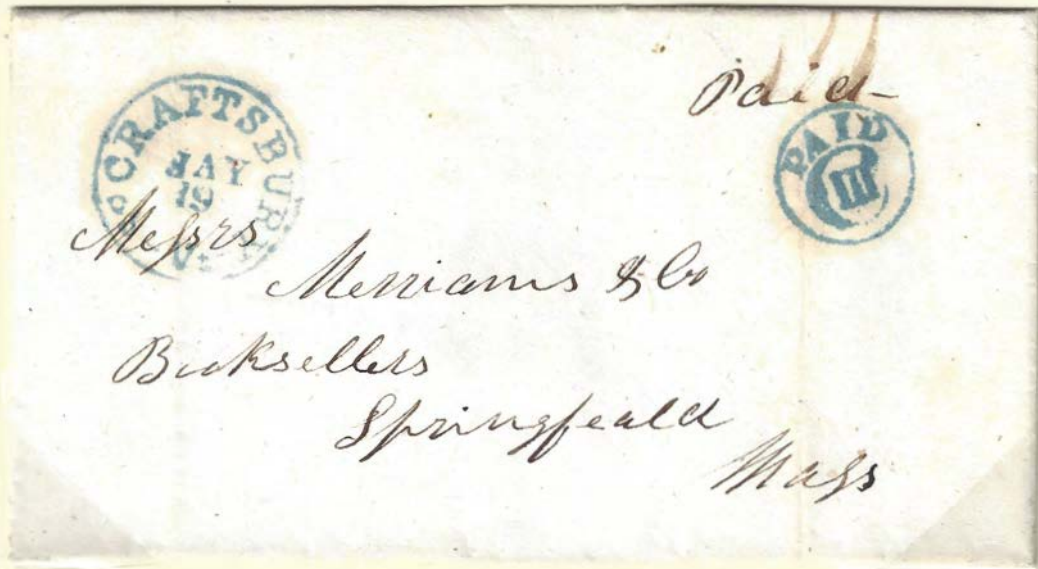 CRAFTSBURY
MAY
19
Vt
Paid
PAID
III
Messrs
Merriams & Co
Booksellers
Springfeald
Mass